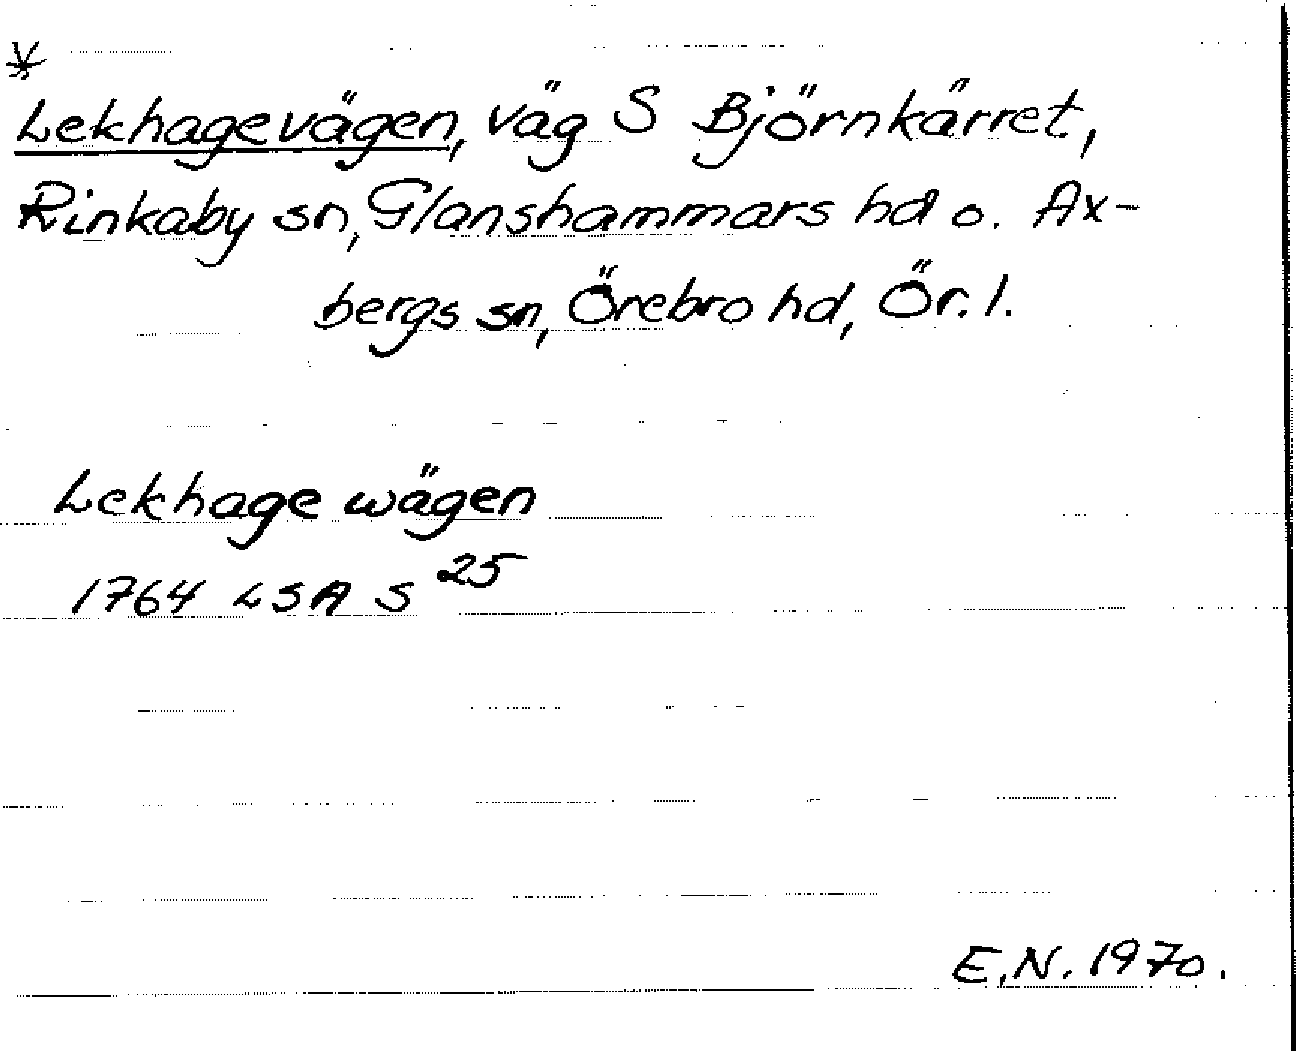 *
Lekhagevägen, väg S Björnkärret,
Rinkaby sn, Glanshammars hd o. Ax-
bergs sn, Örebro hd, Ör. l.
Lekhage wägen
1764 LSA S 25
E.N. 1970.